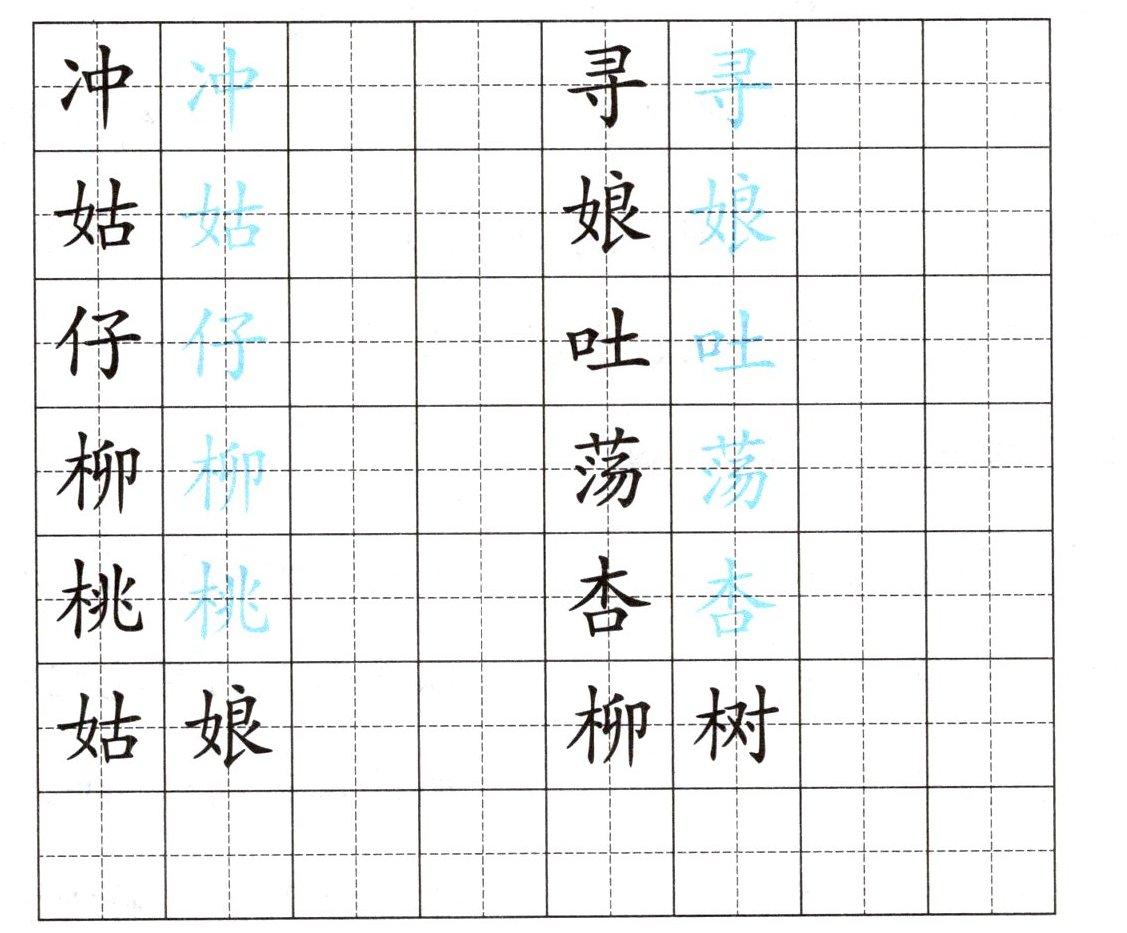 冲 冲 寻 寻
姑 姑 娘 娘
仔 仔 吐 吐
柳 柳 荡 荡
桃 桃 杏 杏
姑 娘 柳 树